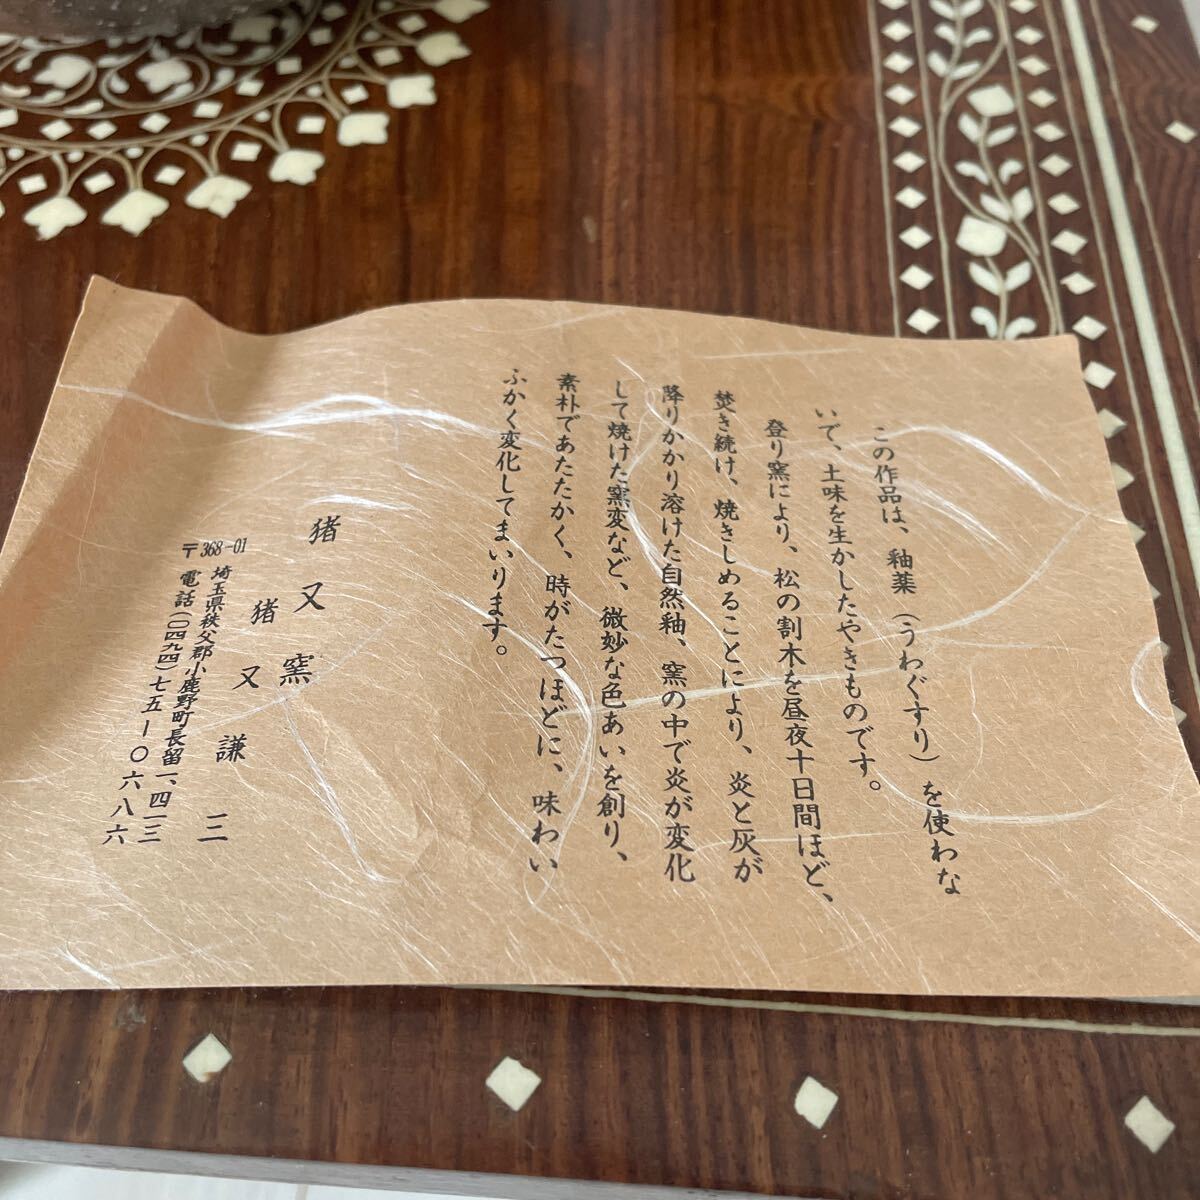 この作品は、釉薬（うわぐすり）を使わな
いで、土味を生かしたやきものです。
登り窯により、松の割木を昼夜十日間ほど、
焚き続け、焼きしめることにより、炎と灰が
降りかかり溶けた自然釉、窯の中で炎が変化
して焼けた窯変など、微妙な色あいを創り、
素朴であたたかく、時がたつほどに、味わい
ふかく変化してまいります。
猪又窯
猪又謙三
〒368-01 埼玉県秩父郡小鹿野町長留一、四一三
電話（〇四九四）七五ー〇六八六